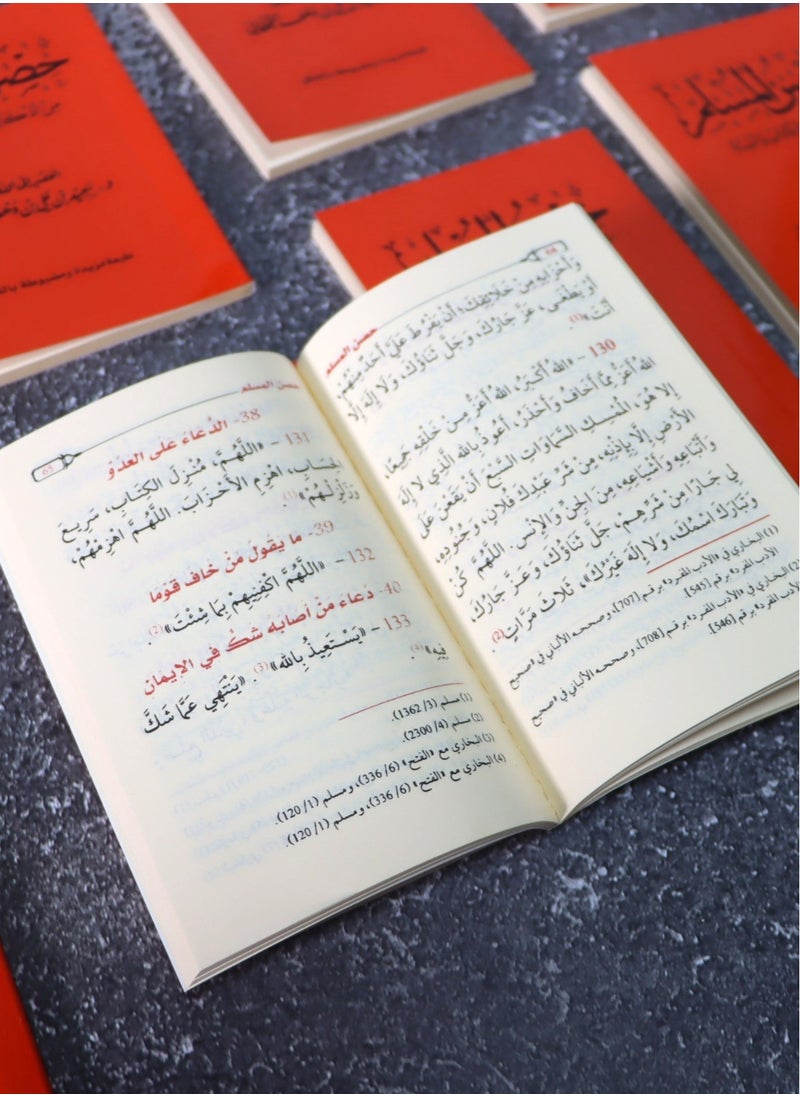 حصن المسلم
64
وَأَحْزَابِهِ مِنْ خَلَائِقِكَ، أَنْ يَفْرُطَ عَلَيَّ أَحَدٌ مِنْهُمْ
أَوْ يَطْغَى، عَزَّ جَارُكَ، وَجَلَّ ثَنَاؤُكَ، وَلَا إِلَهَ إِلَّا
أَنْتَ»(1).
130 – «اللهُ أَكْبَرُ، اللهُ أَعَزُّ مِنْ خَلْقِهِ جَمِيعًا،
اللهُ أَعَزُّ مِمَّا أَخَافُ وَأَحْذَرُ، أَعُوذُ بِاللهِ الَّذِي لَا إِلَهَ
إِلَّا هُوَ، الْمُمْسِكِ السَّمَاوَاتِ السَّبْعِ أَنْ يَقَعْنَ عَلَى
الْأَرْضِ إِلَّا بِإِذْنِهِ، مِنْ شَرِّ عَبْدِكَ فُلَانٍ، وَجُنُودِهِ،
وَأَتْبَاعِهِ وَأَشْيَاعِهِ، مِنَ الْجِنِّ وَالْإِنْسِ. اللَّهُمَّ كُنْ
لِي جَارًا مِنْ شَرِّهِمْ، جَلَّ ثَنَاؤُكَ، وَعَزَّ جَارُكَ،
وَتَبَارَكَ اسْمُكَ، وَلَا إِلَهَ غَيْرُكَ»، ثَلَاثَ مَرَّاتٍ(2).
(1) البخاري في «الأدب المفرد» برقم [707]، وصححه الألباني في «صحيح
الأدب المفرد» برقم [545].
(2) البخاري في «الأدب المفرد» برقم [708]، وصححه الألباني في «صحيح
الأدب المفرد» برقم [546].
حصن المسلم
65
38- الدُّعَاءُ عَلَى العَدُوِّ
131 – «اللَّهُمَّ، مُنْزِلَ الكِتَابِ، سَرِيعَ
الحِسَابِ، اهْزِمِ الأَحْزَابَ. اللَّهُمَّ اهْزِمْهُمْ،
وَزَلْزِلْهُمْ»(1).
39- ما يَقُولُ مَنْ خَافَ قَوْمًا
132 – «اللَّهُمَّ اكْفِنِيهِمْ بِمَا شِئْتَ»(2).
40- دُعَاءُ مَنْ أَصَابَهُ شَكٌّ فِي الإِيمَانِ
133 – «يَسْتَعِيذُ بِاللهِ»(3). «يَنْتَهِي عَمَّا شَكَّ
فِيهِ»(4).
(1) مسلم (3/ 1362).
(2) مسلم (4/ 2300).
(3) البخاري مع «الفتح» (6/ 336)، ومسلم (1/ 120).
(4) البخاري مع «الفتح» (6/ 336)، ومسلم (1/ 120).